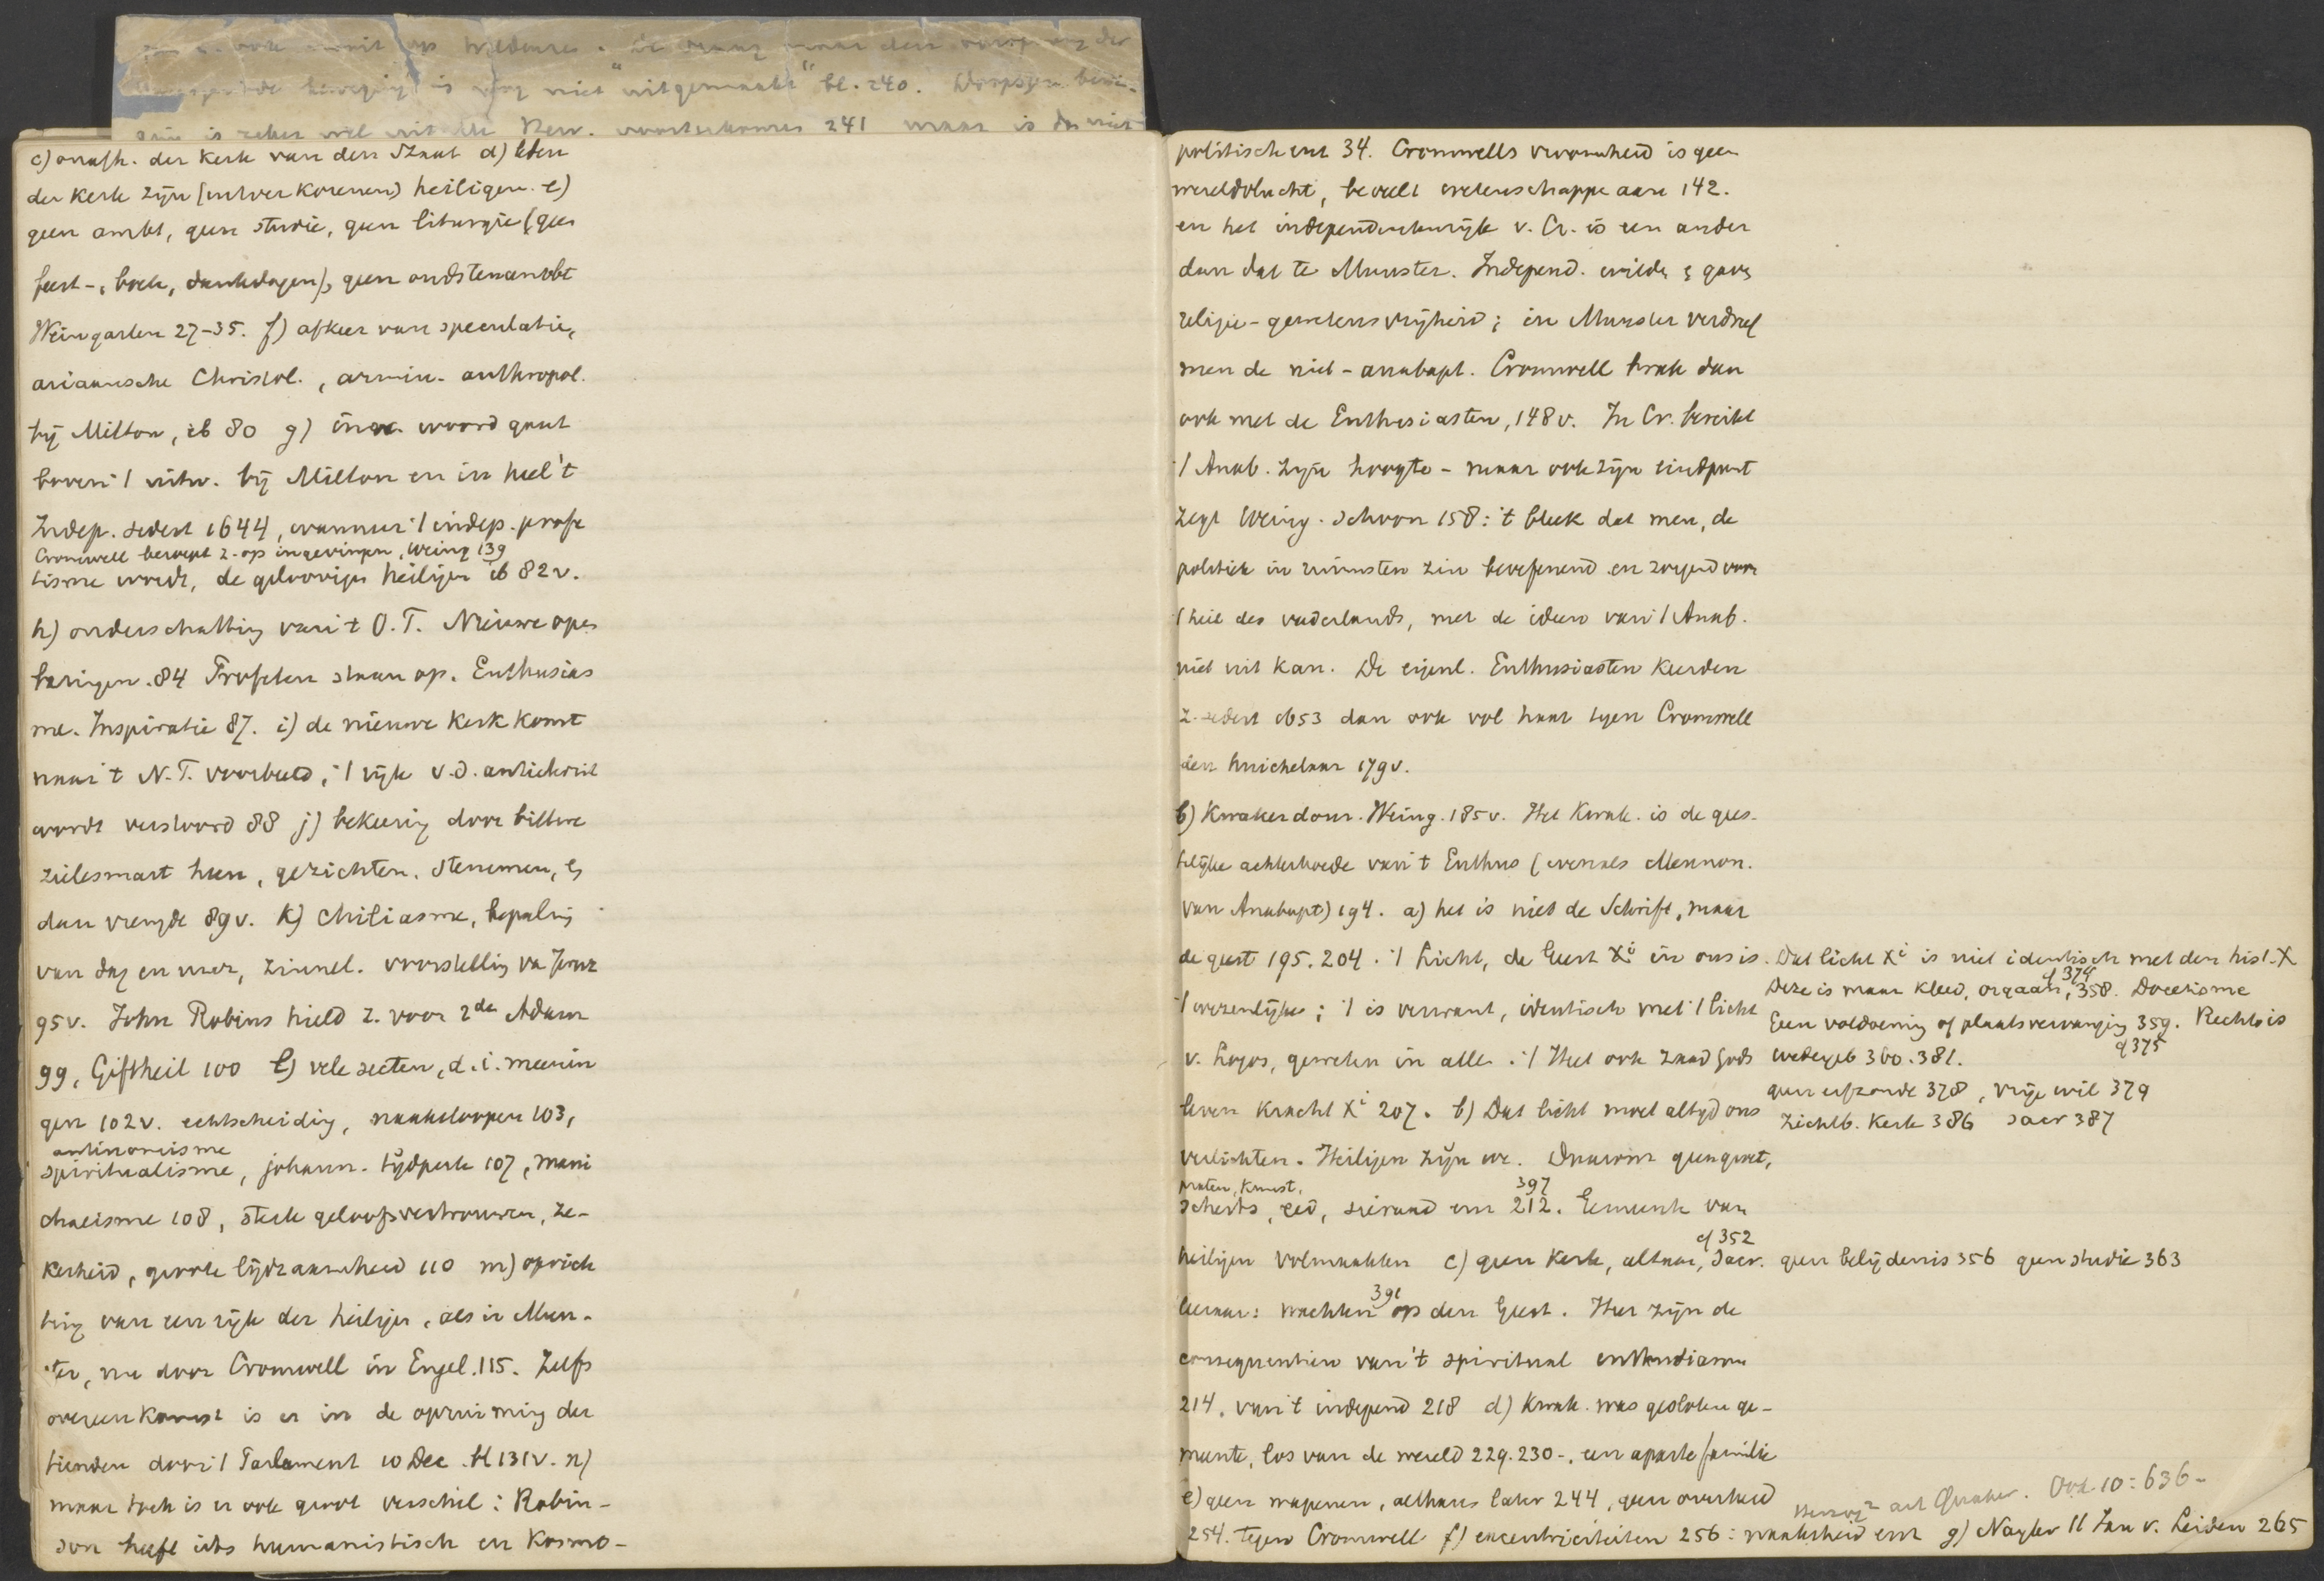 "uitgemaakt" bl. 240. Doopsgez.
is zeker wel uit de Herv. voortgekomen 241 maar is
c) onafh. der kerk van den Staat d) leden
der kerk zijn (uitverkorenen) heiligen. e)
geen ambt, geen studie, geen liturgie (geen
feest-, boete, dankdagen), geen oudstenambt
Weingarten 27-35. f) afkeer van speculatie,
ariaansche Christol., armin. anthropol.
bij Milton, ib 80 g) inw. woord gaat
boven 't uitw. bij Milton en in heel 't
Indep. sedert 1644, wanneer 't indep. profe
Cromwell beroept z. op ingevingen, Weing 139
tisme wordt, de geloovigen heiligen ib 82v.
h) onderschatting van 't O.T. Nieuwe open
baringen. 84 Profeten staan op. Enthusias
me. Inspiratie 87. i) de nieuwe kerk komt
naar 't N.T. voorbeeld, 't rijk v.d. antichrist
wordt verstoord 88 j) bekeering door bittere
zielesmart heen, gezichten, stemmen, en
dan vreugde 89v. k) chiliasme, bepaling
van dag en uur, zinnel. voorstelling va Jeruz
95v. John Robins hield z. voor 2de Adam
99, Giftheil 100 l) vele secten, d.i. meenin
gen 102v. echtscheiding, naaktloopen 103,
antinomisme
spiritualisme, johann. tijdperk 107, mani
chaeisme 108, sterk geloofsvertrouwen, ze-
kerheid, groote lijdzaamheid 110 m) oprich
ting van een rijk der heiligen, als in Mun-
ster, nu door Cromwell in Engel. 115. Zelfs
overeenkomst is er in de opruiming der
tienden door 't Parlament 10 Dec. bl 131v. n)
maar toch is er ook groot verschil: Robin-
son heeft iets humanistisch en kosmo-
politisch ent 34. Cromwells vroomheid is geen
wereldvlucht, beveelt wetenschappe aan 142.
en het independentenrijk v. Cr. is een ander
dan dat te Munster. Independ. wilde & gaven
religie-gewetensvrijheid; in Munster verdreef
men de niet-anabapt. Cromwell brak dan
ook met de Enthusiasten, 148v. In Cr. bereikt
't Anab. zijn hoogte - maar ook zijn eindpunt
zegt Weing. schoon 158: 't bleek dat men, de
politiek in ruimsten zin beoefenend en zorgend voor
't heil des vaderlands, met de ideen van 't Anab.
niet uit kan. De eigenl. Enthusiasten keerden
z. sedert 1653 dan ook vol haat tegen Cromwell
den huichelaar 179v.
b) Kwakerdom. Weing. 185v. Het Kwak. is de gees-
telijke achterhoede van 't Enthus (evenals Mennon.
van Anabapt) 194. a) het is niet de Schrift, maar
de geest 195. 204. 't Licht, de Geest Xi in ons is. Dat licht Xi is niet identisch met den hist. X
cf 374
Deze is maar kleed, orgaan, 358. Docetisme
't wezenlijke; 't is verwant, identisch met 't licht
Geen voldoening of plaatsvervanging 359. Rechtv is
v. Logos, geweten in alle. 't Heet ook zaad Gods wedergeb 360. 381.
cf 375
geen erfzonde 378, vrije wil 379
leven kracht Xi 207. b) Dat licht moet altijd ons
zichtb. Kerk 386 sacr 387
verlichten. Heiligen zijn we. Daarom geen groet,
praten, kunst, 397
scherts, eed, sieraad enz 212. Gemeente van
cf 352
heiligen volmaakten c) geen kerk, altaar, sacr. geen belijdenis 356 geen studie 363
391
leeraar: wachten op den Geest. Hier zijn de
consequentien van 't spiritual enthusiasme
214. van 't independ 218 d) Kwak. was gesloten ge-
meente, los van de wereld 229. 230-. een aparte familie
e) geen wapenen, althans later 244, geen overheid
Herzog2 art Quaker. Ook 10: 636-
254. tegen Cromwell f) excentriciteiten 256: naaktheid enz g) Naylor || Jan v. Leiden 265